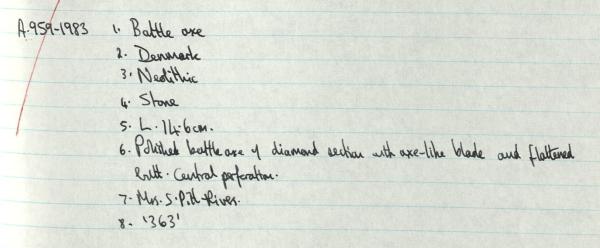 A.959-1983 1. Battle axe
2. Denmark
3. Neolithic
4. Stone
5. L. 14.6cm.
6. Polished battle axe of diamond section with axe-like blade and flattened
butt. Central perforation.
7. Mrs. S. Pitt-Rivers.
8. '363'